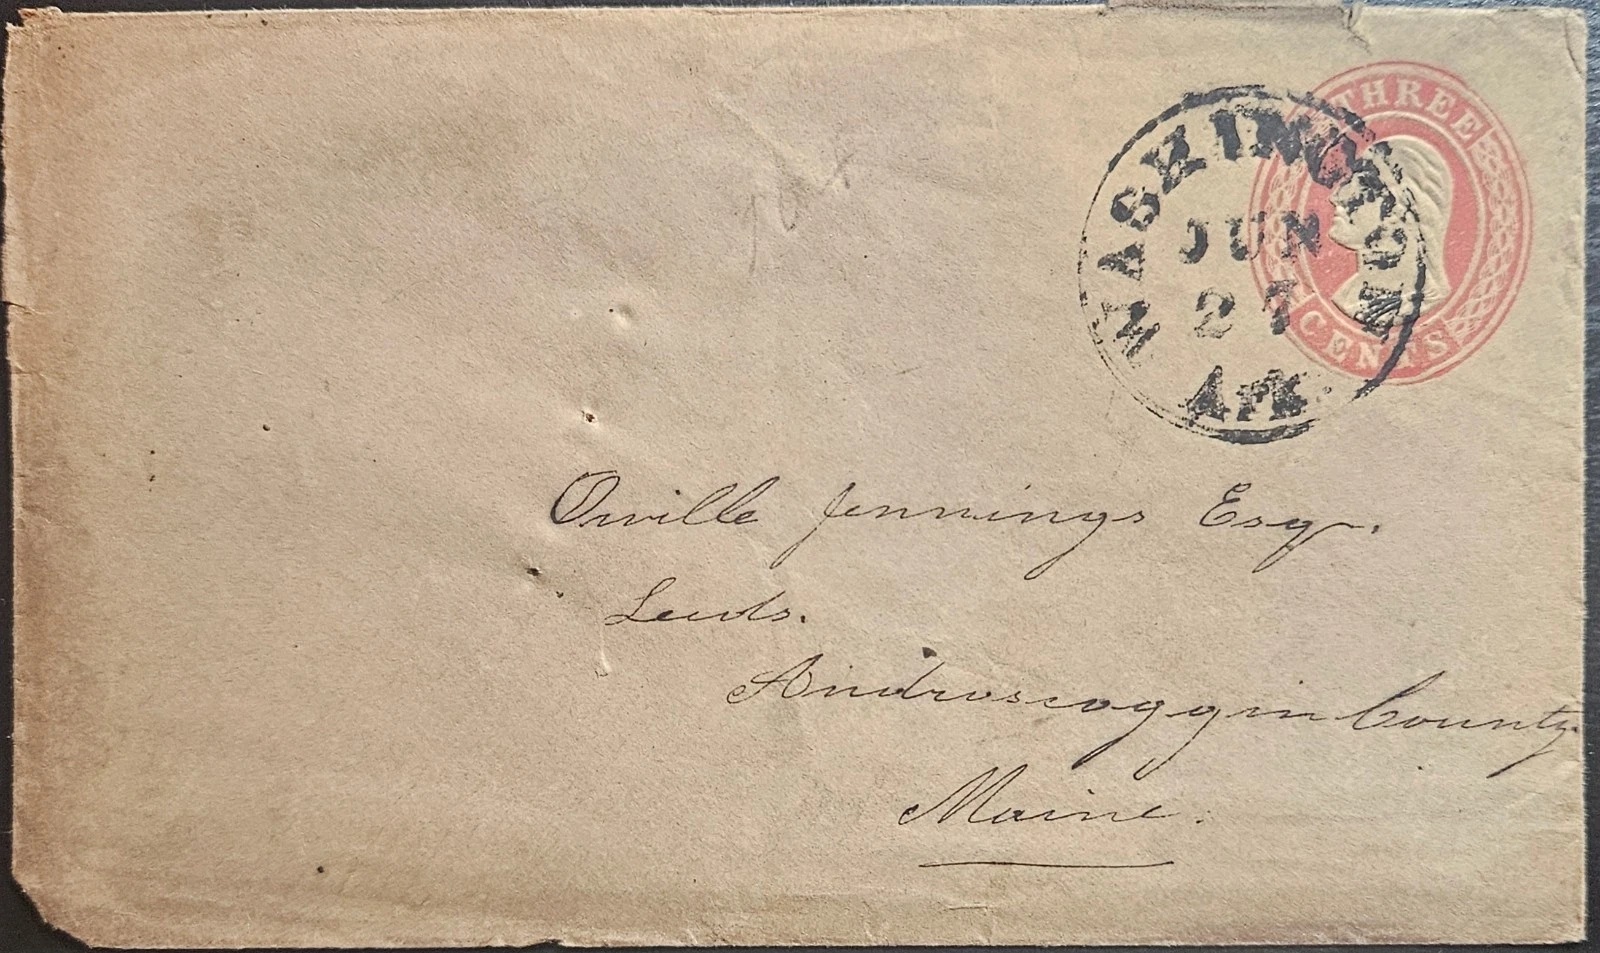 THREE
CENTS
WASHINGTON
JUN
27
Ark.
Orville Jennings Esqr.
Leeds.
Androscoggin County
Maine.